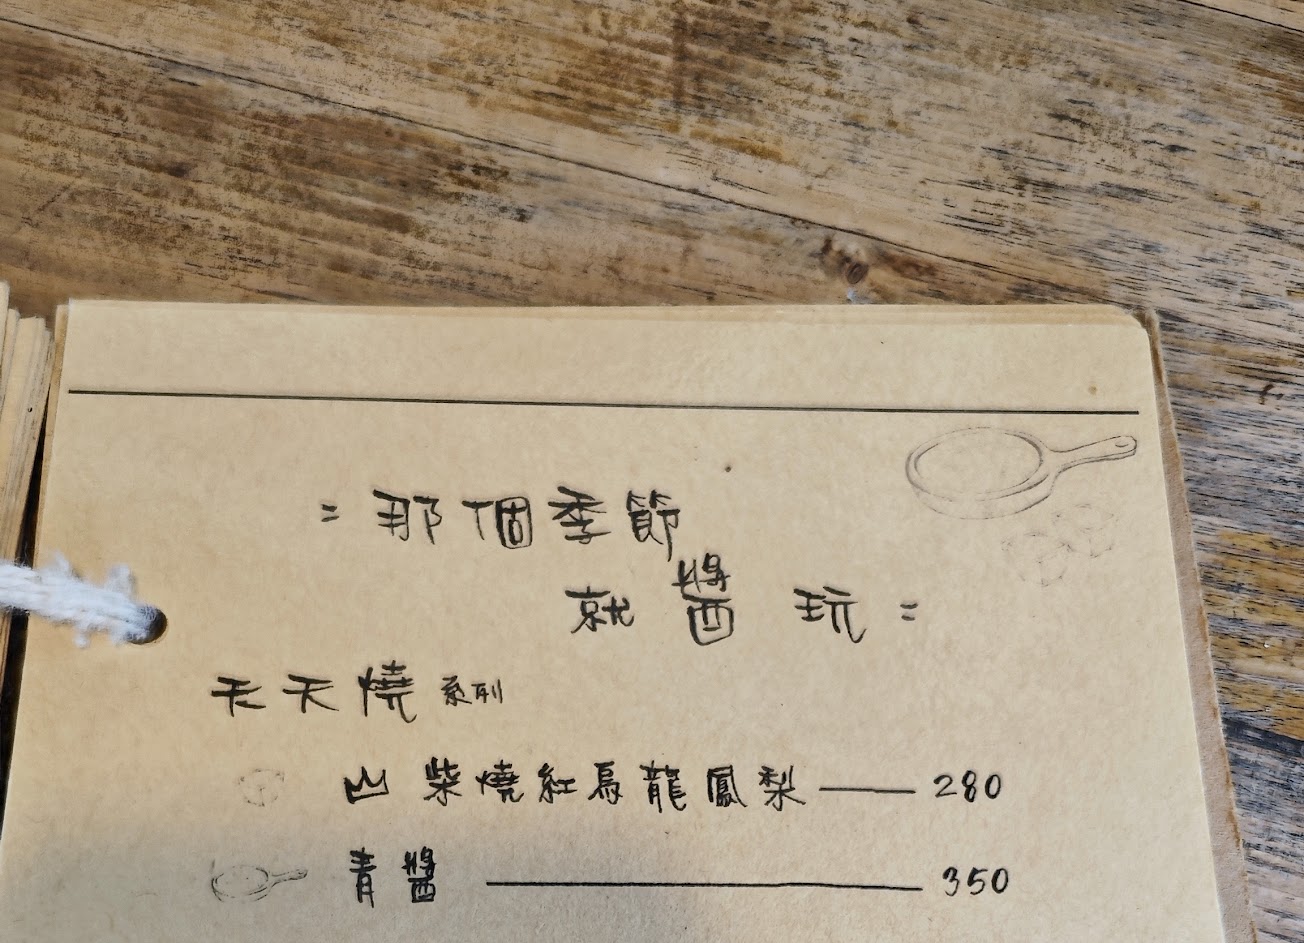 = 那個季節
就醬玩 =
天天燒系列
柴燒紅烏龍鳳梨 —— 280
青醬 —— 350